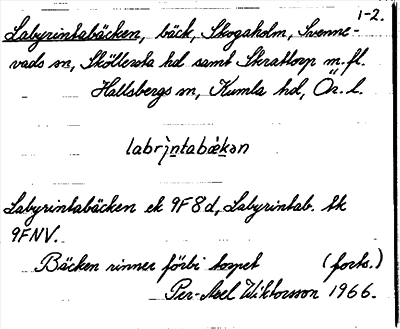 1-2.
Labyrintabäcken, bäck, Skogaholm, Svenne-
vads sn, Sköllersta hd samt Skrattorp m.fl.
Hallsbergs sn, Kumla hd, Ör. l.
labrìntabæ̀kən
Labyrintabäcken ek 9F8d, Labyrintab. tk
9FNV.
Bäcken rinner förbi torpet (forts.)
Per-Axel Wiktorsson 1966.